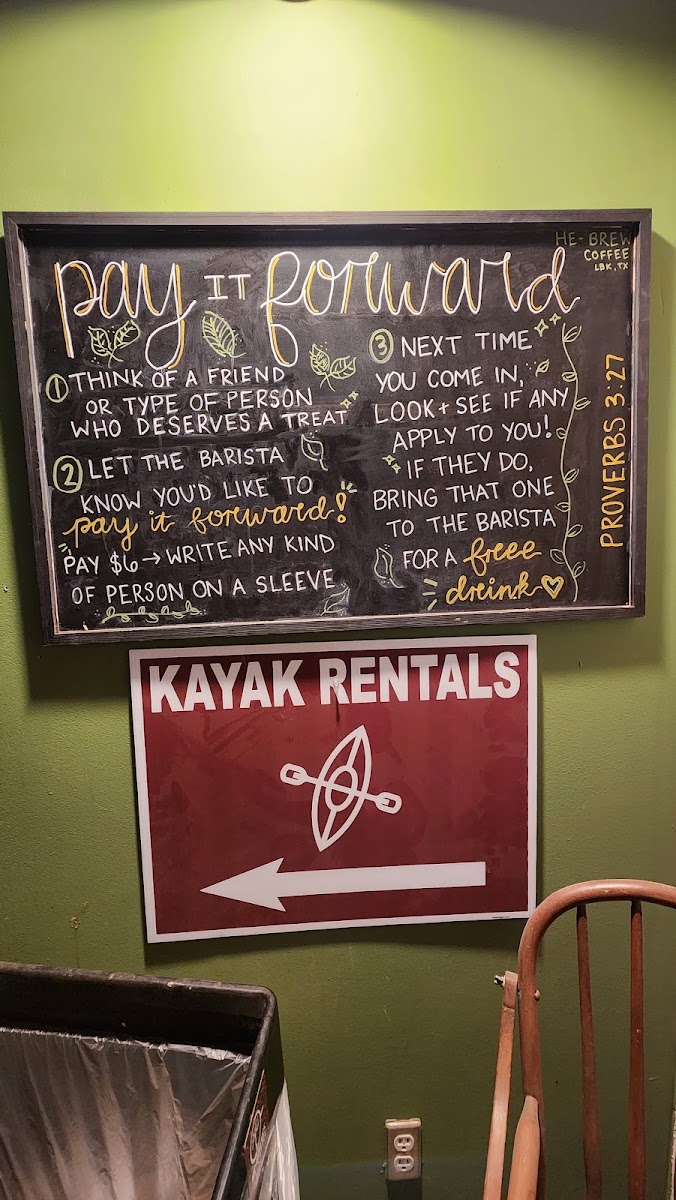 pay IT forward
HE-BREW
COFFEE
LBK, TX
① THINK OF A FRIEND
OR TYPE OF PERSON
WHO DESERVES A TREAT
② LET THE BARISTA
KNOW YOU'D LIKE TO
pay it forward!
PAY $6 → WRITE ANY KIND
OF PERSON ON A SLEEVE
③ NEXT TIME
YOU COME IN,
LOOK + SEE IF ANY
APPLY TO YOU!
IF THEY DO,
BRING THAT ONE
TO THE BARISTA
FOR A free
drink ♡
PROVERBS 3:27
KAYAK RENTALS